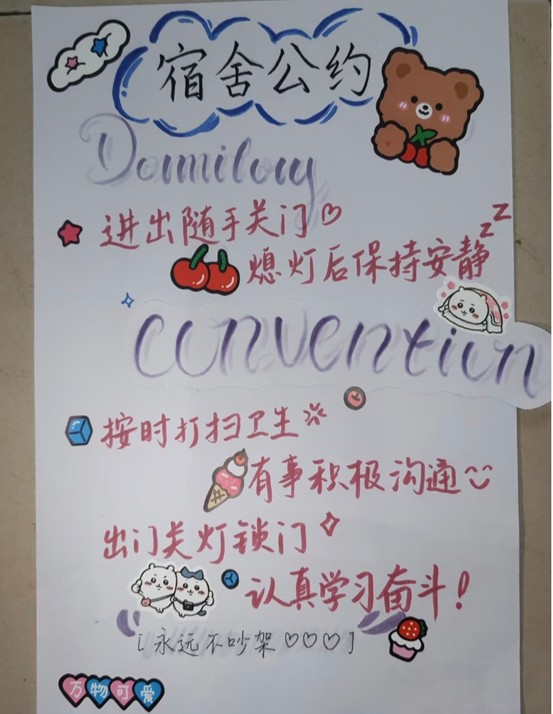 宿舍公约
Dormilory
进出随手关门♡
zzz
熄灯后保持安静
convention
按时打扫卫生
有事积极沟通
出门关灯锁门
认真学习奋斗!
[永远不吵架♡♡♡]
万物可爱